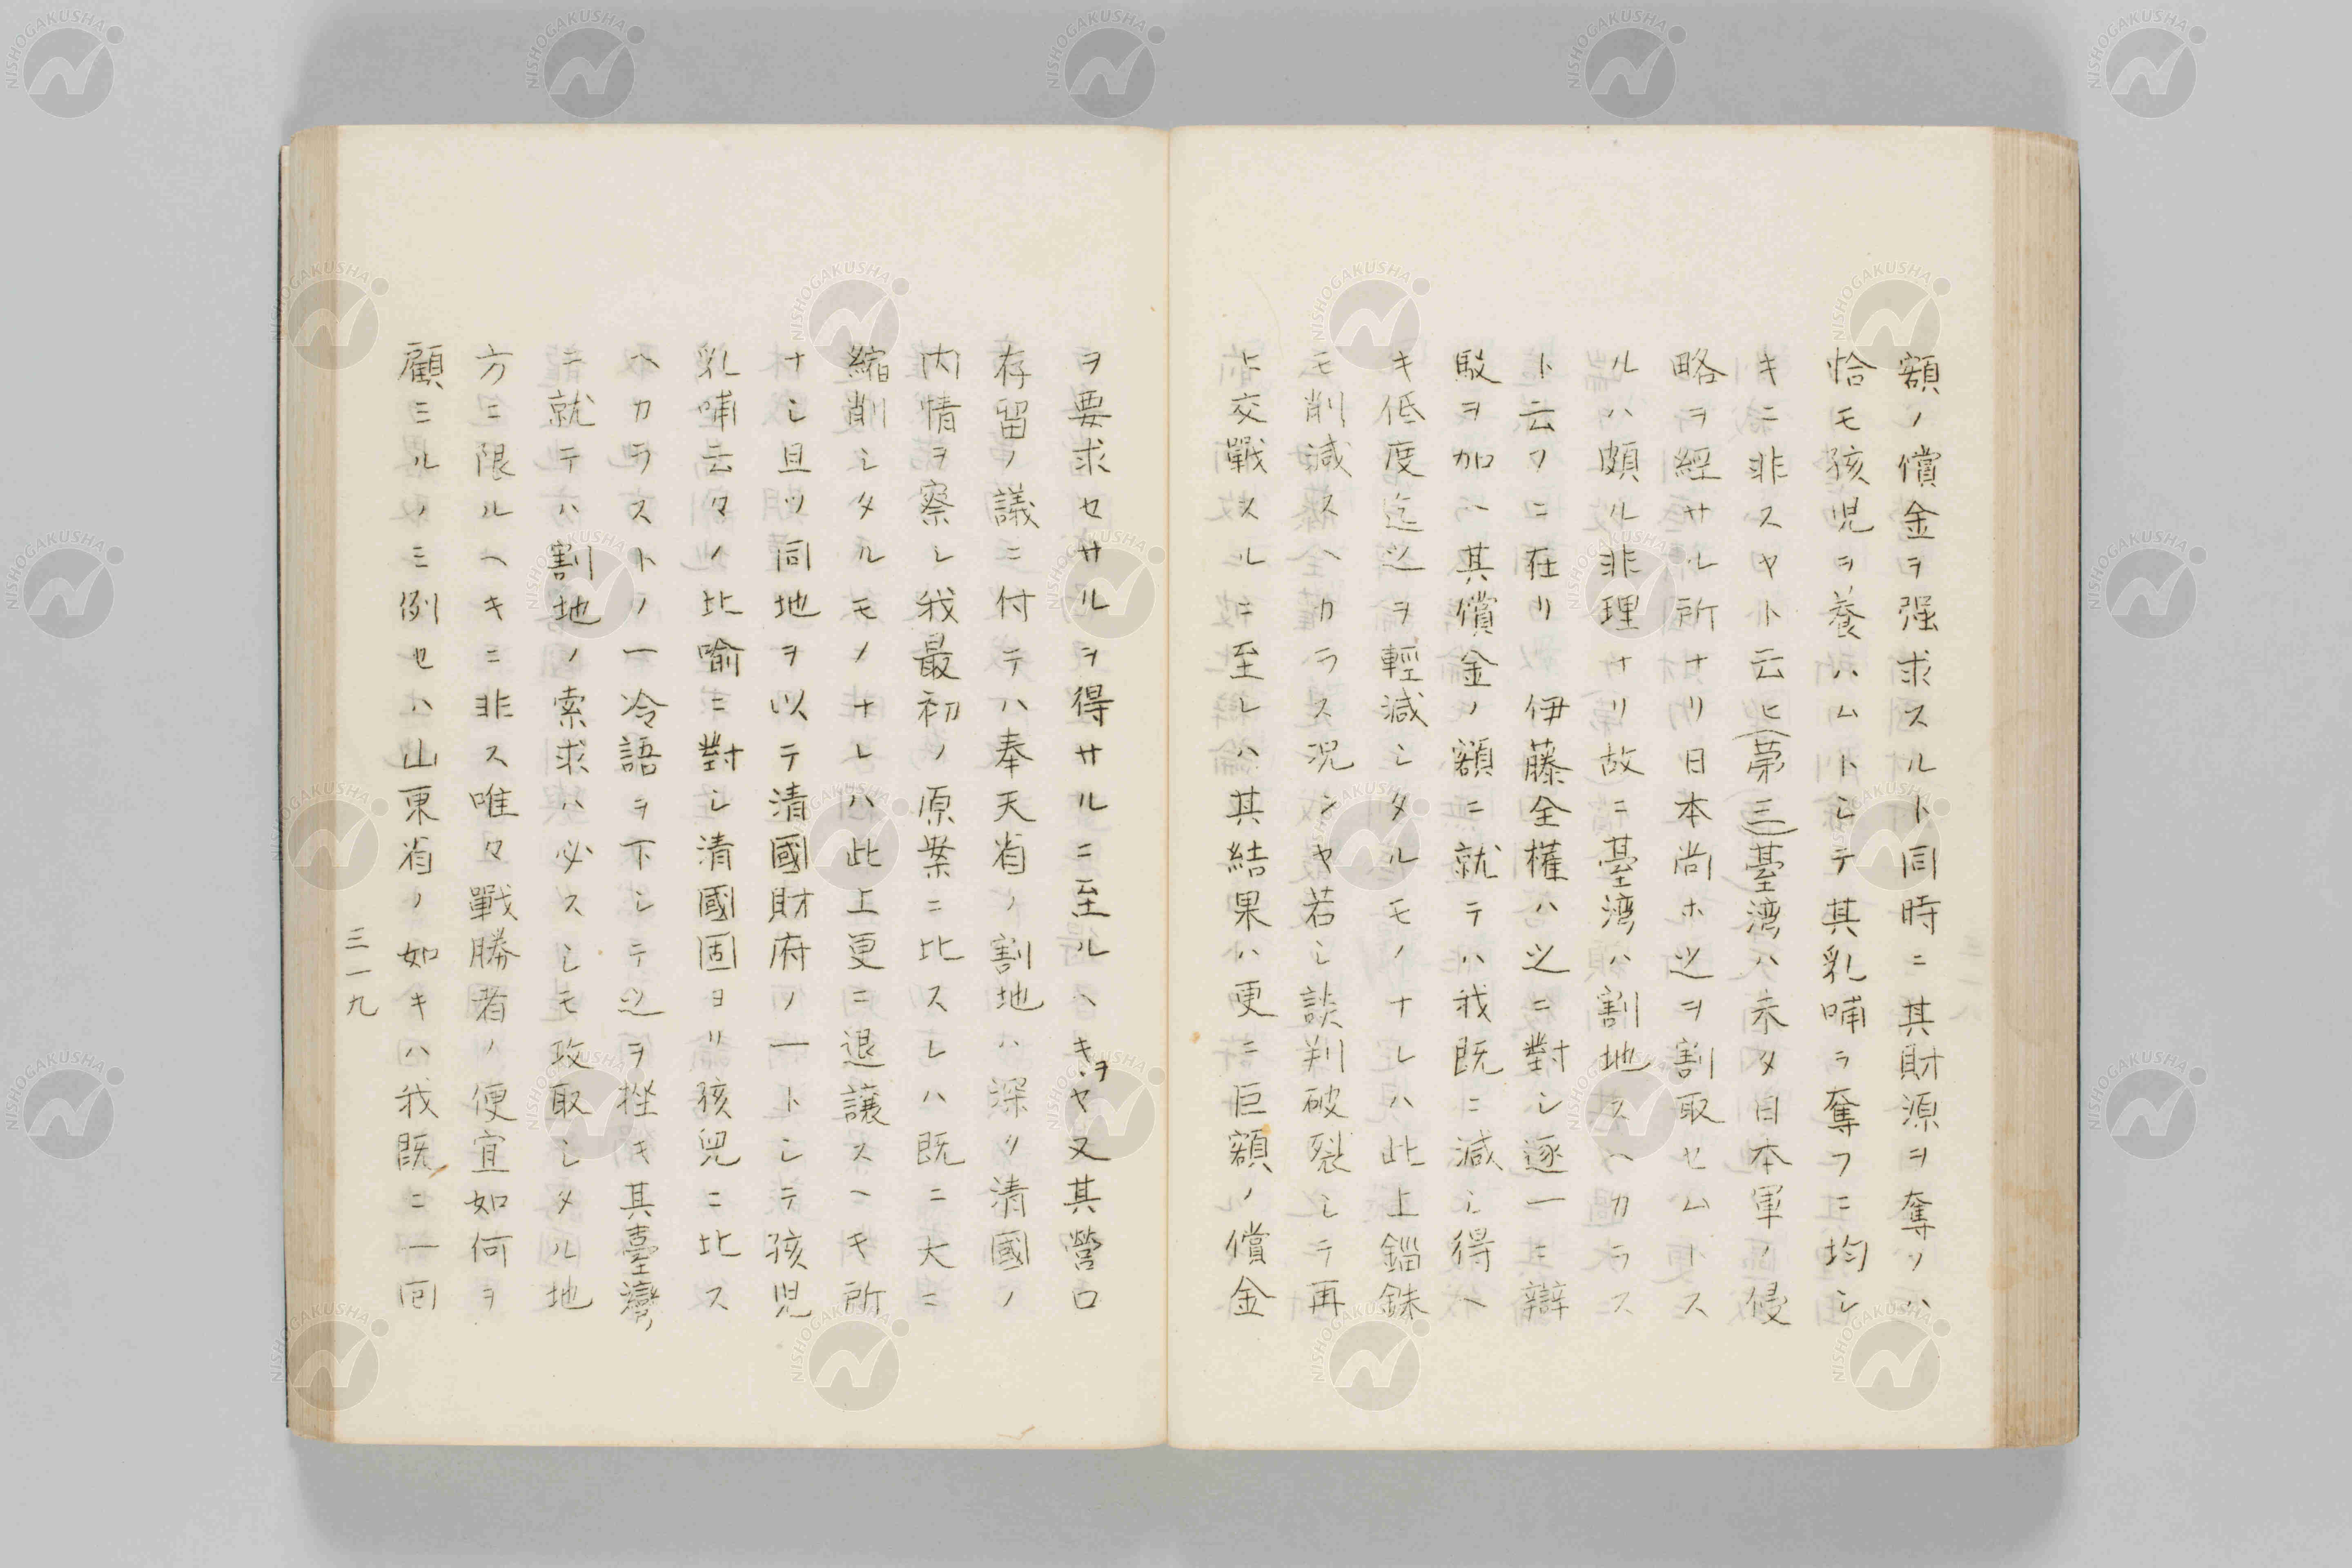 額ノ償金ヲ强求スルト同時ニ其財源ヲ奪ソハ
恰モ孩児ヲ養ハムトシテ其乳哺ヲ奪フニ均シ
キニ非スヤト云ヒ(第三)臺湾ハ未タ日本軍ノ侵
略ヲ經サル所ナリ日本尚ホ之ヲ割取セムトス
ルハ頗ル非理ナリ故ニ臺湾ハ割地スヘカラス
ト云フニ在リ 伊藤全權ハ之ニ對シ逐一ニ辯
駁ヲ加ヘ其償金ノ額ニ就テハ我既ニ減シ得ヘ
キ低度迄之ヲ輕減シタルモノナレハ此上錙銖
モ削減スヘカラス況ンヤ若シ談判破裂シテ再
ヒ交戰スルニ至レハ其結果ハ更ニ巨額ノ償金
ヲ要求セサルヲ得サルニ至ルヘキヲヤ又其營口
存留ノ議ニ付テハ奉天省ノ割地ハ深ク清國ノ
内情ヲ察シ我最初ノ原案ニ比スレハ既ニ大ニ
縮削シタルモノナレハ此上更ニ退讓スヘキ所
ナシ且ツ同地ヲ以テ清國財府ノ一トシテ孩児
乳哺云々ノ比喩ニ對シ清國固ヨリ孩兒ニ比ス
ヘカラストノ一冷語ヲ下シテ之ヲ挫キ其臺灣
ニ就テハ割地ノ索求ハ必スシモ攻取シタル地
方ニ限ルヘキニ非ス唯々戰勝者ノ便宜如何ヲ
顧ミルノミ例セハ山東省ノ如キハ我既ニ一回
三一九
NISHOGAKUSHA